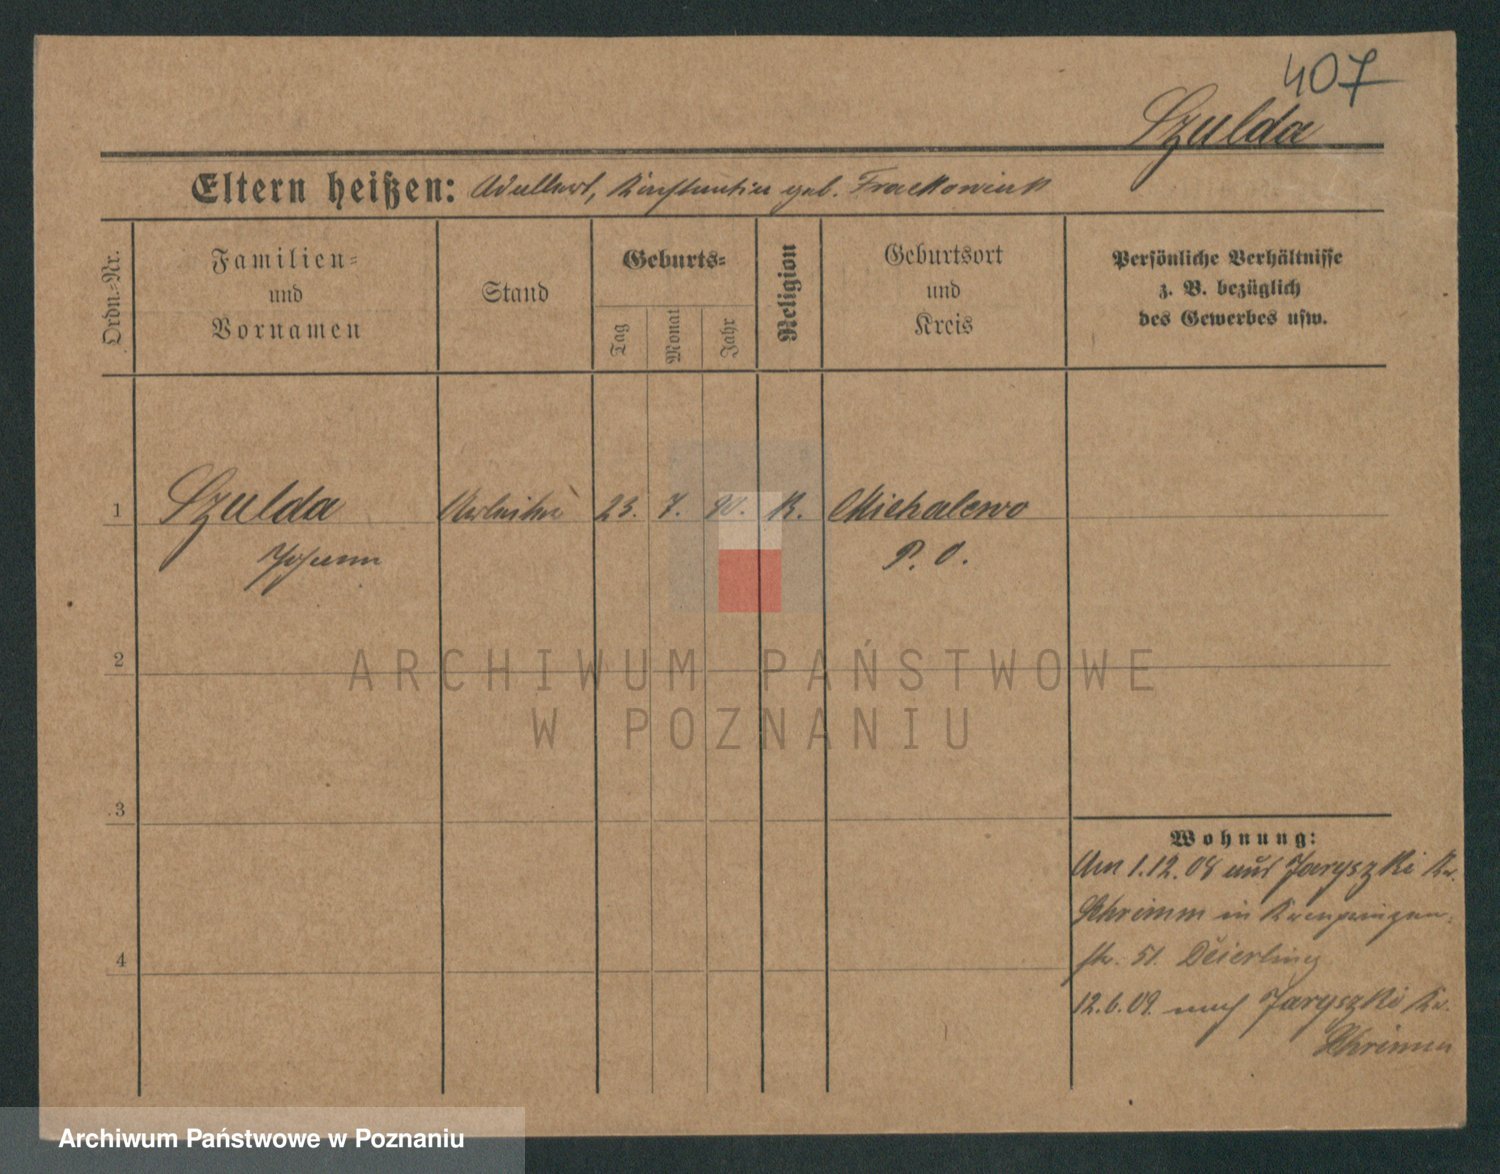 407
Szulda
Eltern heißen: Adalbert, Konstantia geb. Frackowiak
Ordn.-Nr.
Familien-
und
Vornamen
Stand
Geburts-
Tag
Monat
Jahr
Religion
Geburtsort
und
Kreis
Persönliche Verhältnisse
z. B. bezüglich
des Gewerbes usw.
1 Szulda Arbeiter 23. 7. 90. K. Michalewo
Johann P. O.
2
3
4
Wohnung:
Am 1.12.08 aus Jaryszki Kr.
Schrimm in
str. 51. Deierling
12.6.09. nach Jaryszki Kr.
Schrimm
ARCHIWUM PAŃSTWOWE
W POZNANIU
Archiwum Państwowe w Poznaniu